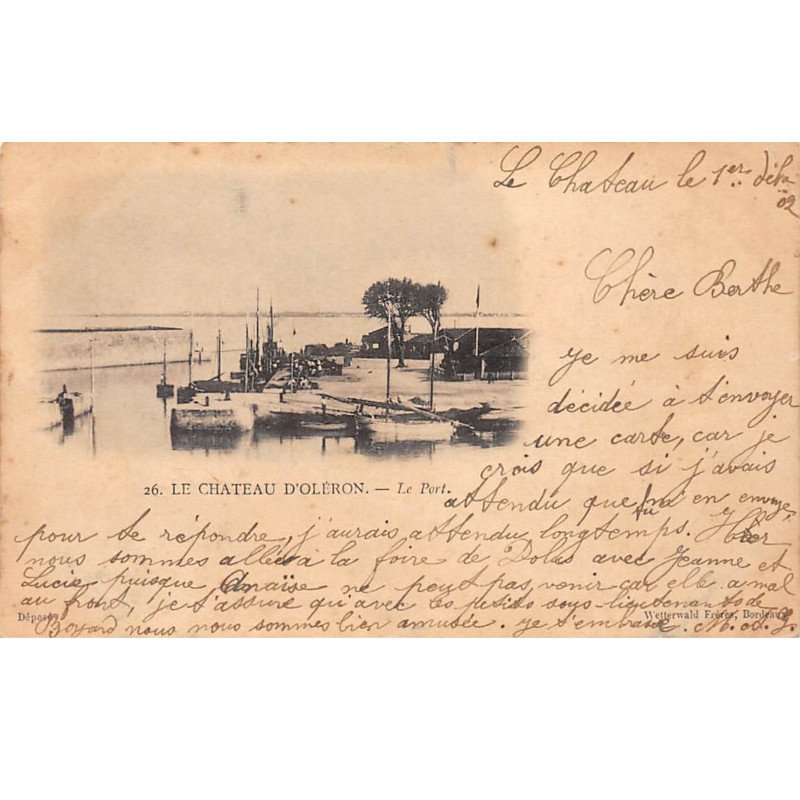 Le Chateau le 1er
02
Chère Berthe
Je me suis
décidée à t'envoyer
une carte, car je
crois que si j'avais
attendu que tu m'en envoye,
26. LE CHATEAU D'OLÉRON. — Le Port.
pour te répondre, j'aurais attendu longtemps. Hier
nous sommes allées à la foire de Dolus avec Jeanne et
Lucie, puisque Anaïse ne peut pas venir car elle a mal
au front, je t'assure qu'avec les petits sous-lieutenants de
Boyard nous nous sommes bien amusée. Je t'embrasse. M.
Déposé
Wetterwald Frères, Bordeaux